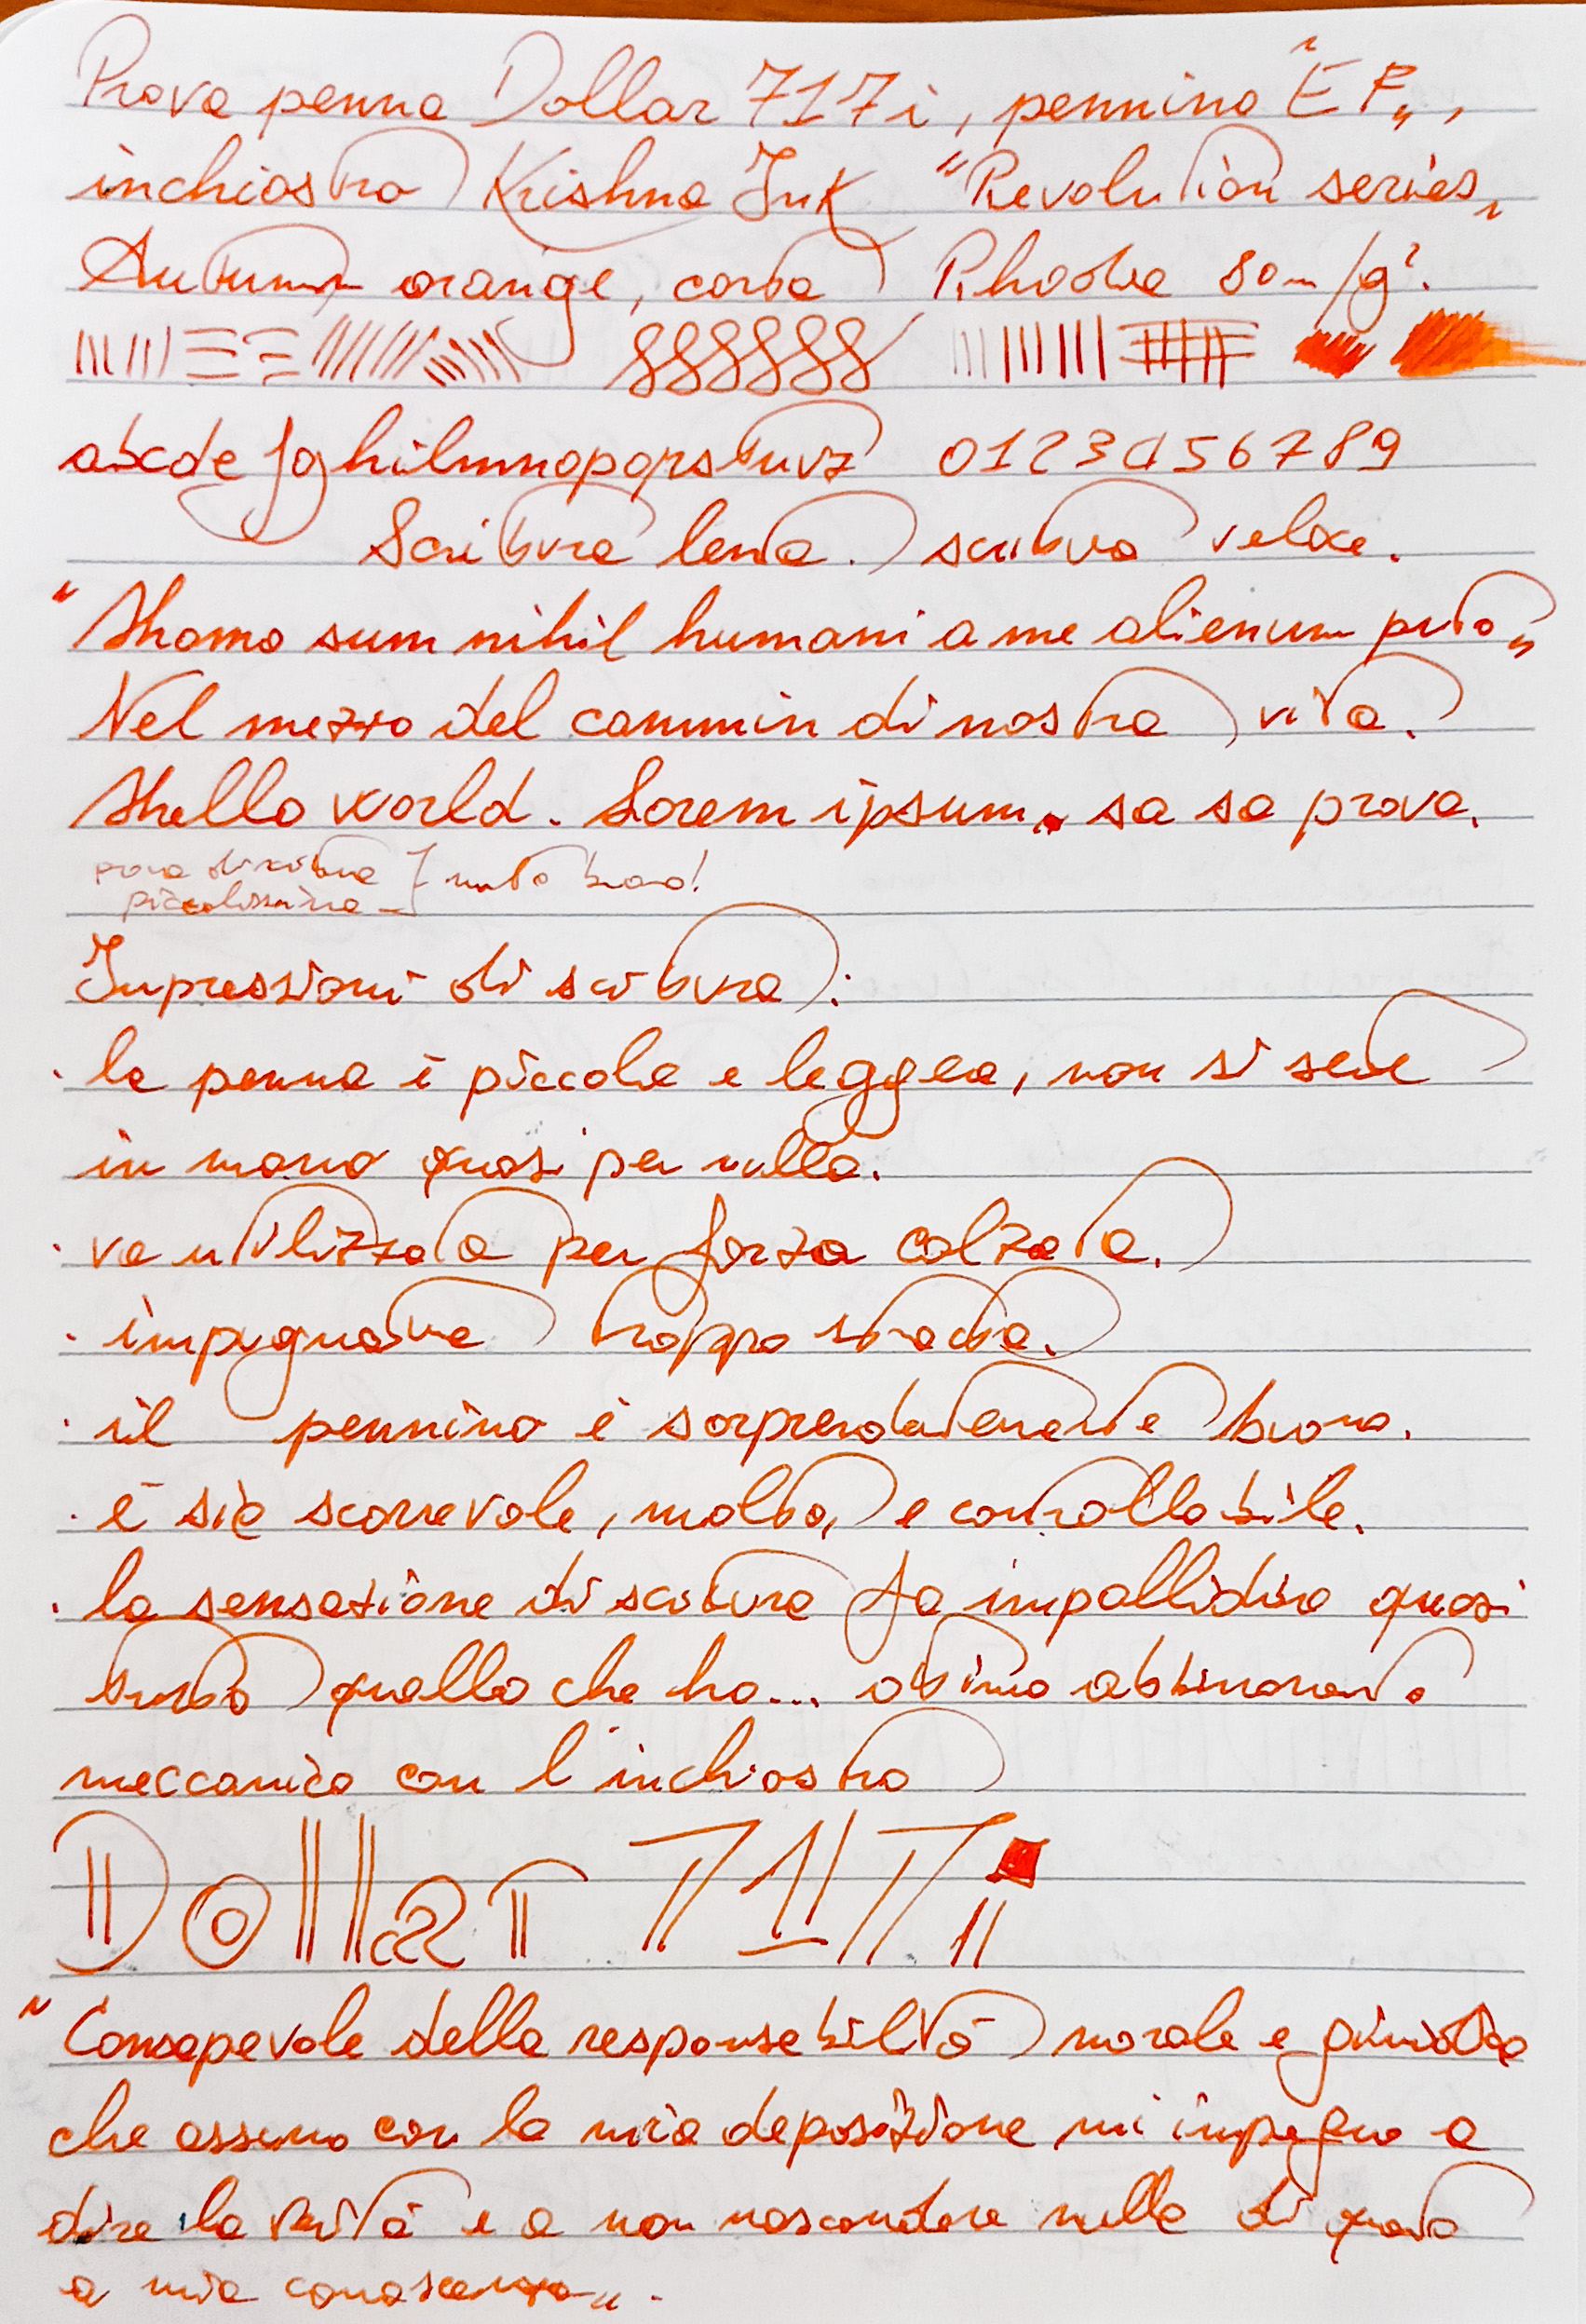 Prova penna Dollar 717i, pennino "EF",
inchiostro Krishna Ink "Revolution series"
Autumn orange, carta Rhodia 80m/g².
abcdefghilmnopqrstuvz 0123456789
Scrittura lenta. scrittura veloce.
"Homo sum nihil humani a me alienum puto"
Nel mezzo del cammin di nostra vita.
Hello world. Lorem ipsum. sa sa prova.
prova di scrittura } molto buono!
piccolissima
Impressioni di scrittura:
· la penna è piccola e leggera, non si sente
in mano quasi per nulla.
· va utilizzata per forza calzata.
· impugnatura troppo stretta.
· il pennino è sorprendentemente buono.
· è sia scorrevole, molto, e controllabile.
· la sensazione di scrittura fa impallidire quasi
tutto quello che ho... ottimo abbinamento
meccanico con l'inchiostro
Dollar 717i
"Consapevole della responsabilità morale e giuridica
che assumo con la mia deposizione mi impegno a
dire la verità e a non nascondere nulla di quanto
a mia conoscenza".